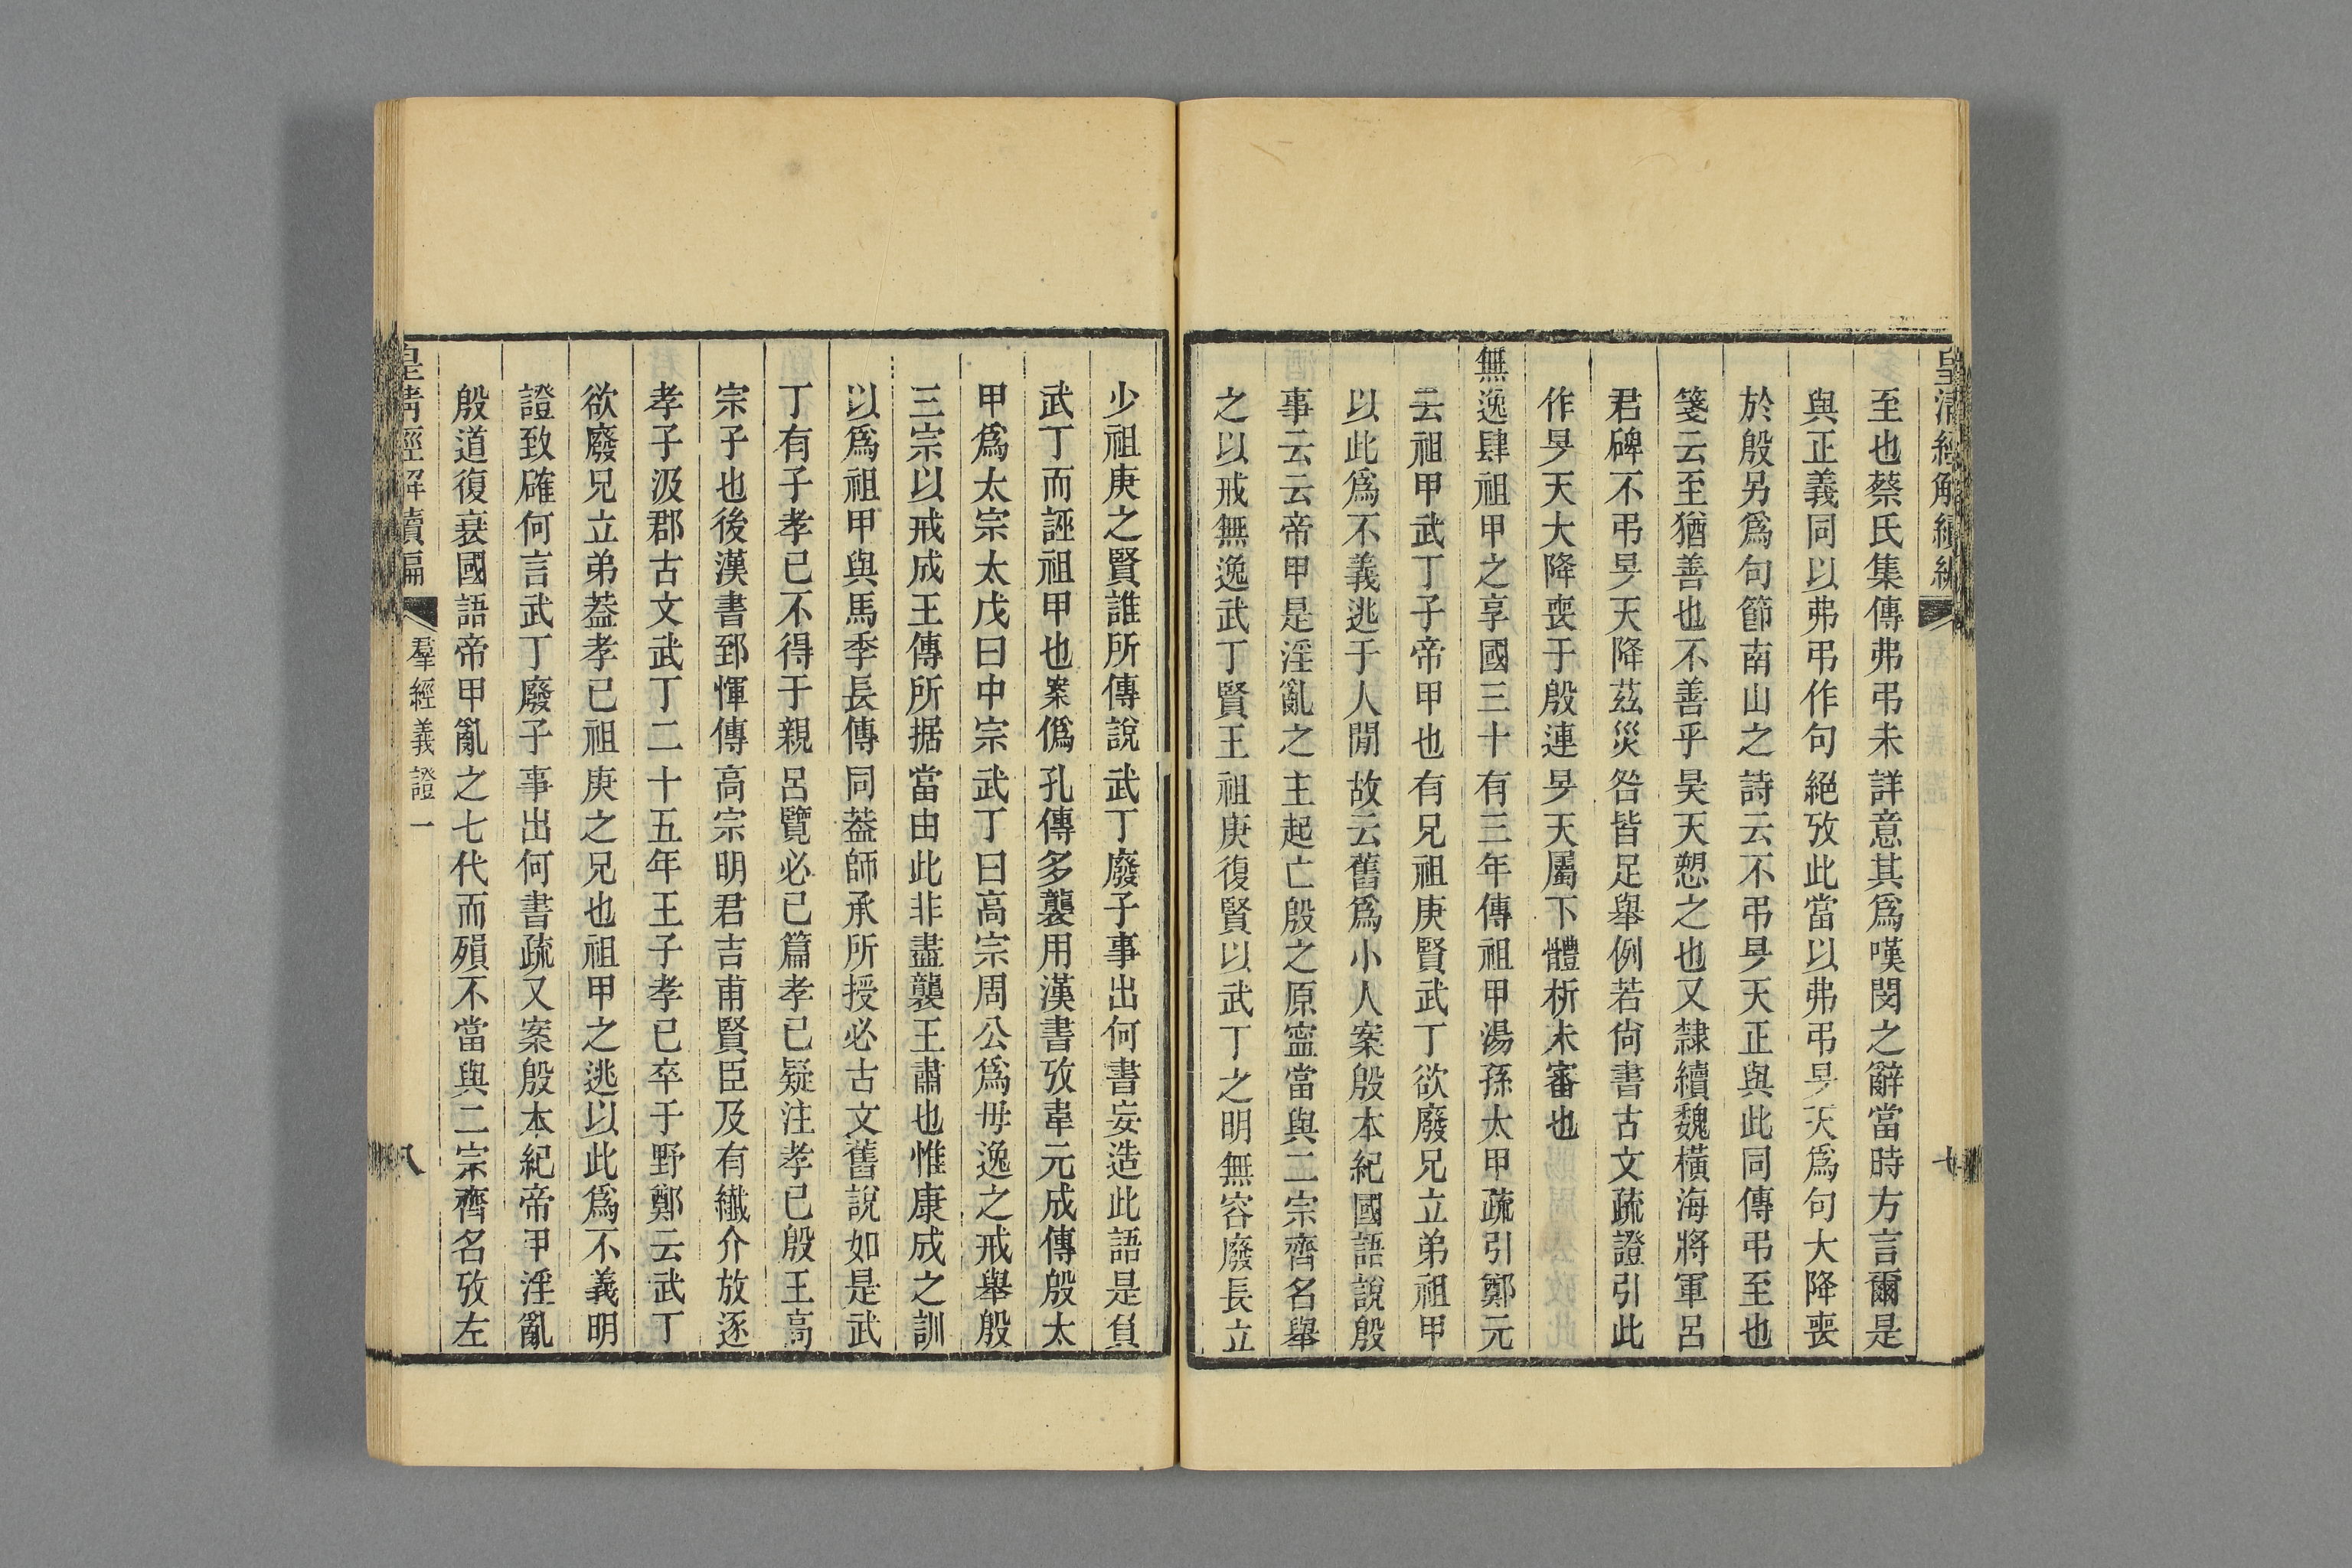 皇清經解續編
七
至也蔡氏集傳弗弔未詳意其爲嘆閔之辭當時方言爾是
與正義同以弗弔作句絕攷此當以弗弔旻天爲句大降喪
於殷另爲句節南山之詩云不弔昊天正與此同傳弔至也
箋云至猶善也不善乎昊天愬之也又隸續魏橫海將軍呂
君碑不弔旻天降茲災咎皆足舉例若尙書古文疏證引此
作旻天大降喪于殷連旻天屬下體析未審也
無逸肆祖甲之享國三十有三年傳祖甲湯孫太甲疏引鄭元
云祖甲武丁子帝甲也有兄祖庚賢武丁欲廢兄立弟祖甲
以此爲不義逃于人閒故云舊爲小人案殷本紀國語說殷
事云云帝甲是淫亂之主起亡殷之原寍當與二宗齊名舉
之以戒無逸武丁賢王祖庚復賢以武丁之明無容廢長立
少祖庚之賢誰所傳說武丁廢子事出何書妄造此語是負
武丁而誣祖甲也案僞孔傳多襲用漢書攷韋元成傳殷太
甲爲太宗太戊曰中宗武丁曰高宗周公爲毋逸之戒舉殷
三宗以戒成王傳所据當由此非盡襲王肅也惟康成之訓
以爲祖甲與馬季長傳同葢師承所授必古文舊說如是武
丁有子孝已不得于親呂覽必已篇孝已疑注孝已殷王高
宗子也後漢書郅惲傳高宗明君吉甫賢臣及有纖介放逐
孝子汲郡古文武丁二十五年王子孝已卒于野鄭云武丁
欲廢兄立弟葢孝已祖庚之兄也祖甲之逃以此爲不義明
證致確何言武丁廢子事出何書疏又案殷本紀帝甲淫亂
殷道復衰國語帝甲亂之七代而殞不當與二宗齊名攷左
皇清經解續編
羣經義證一
八